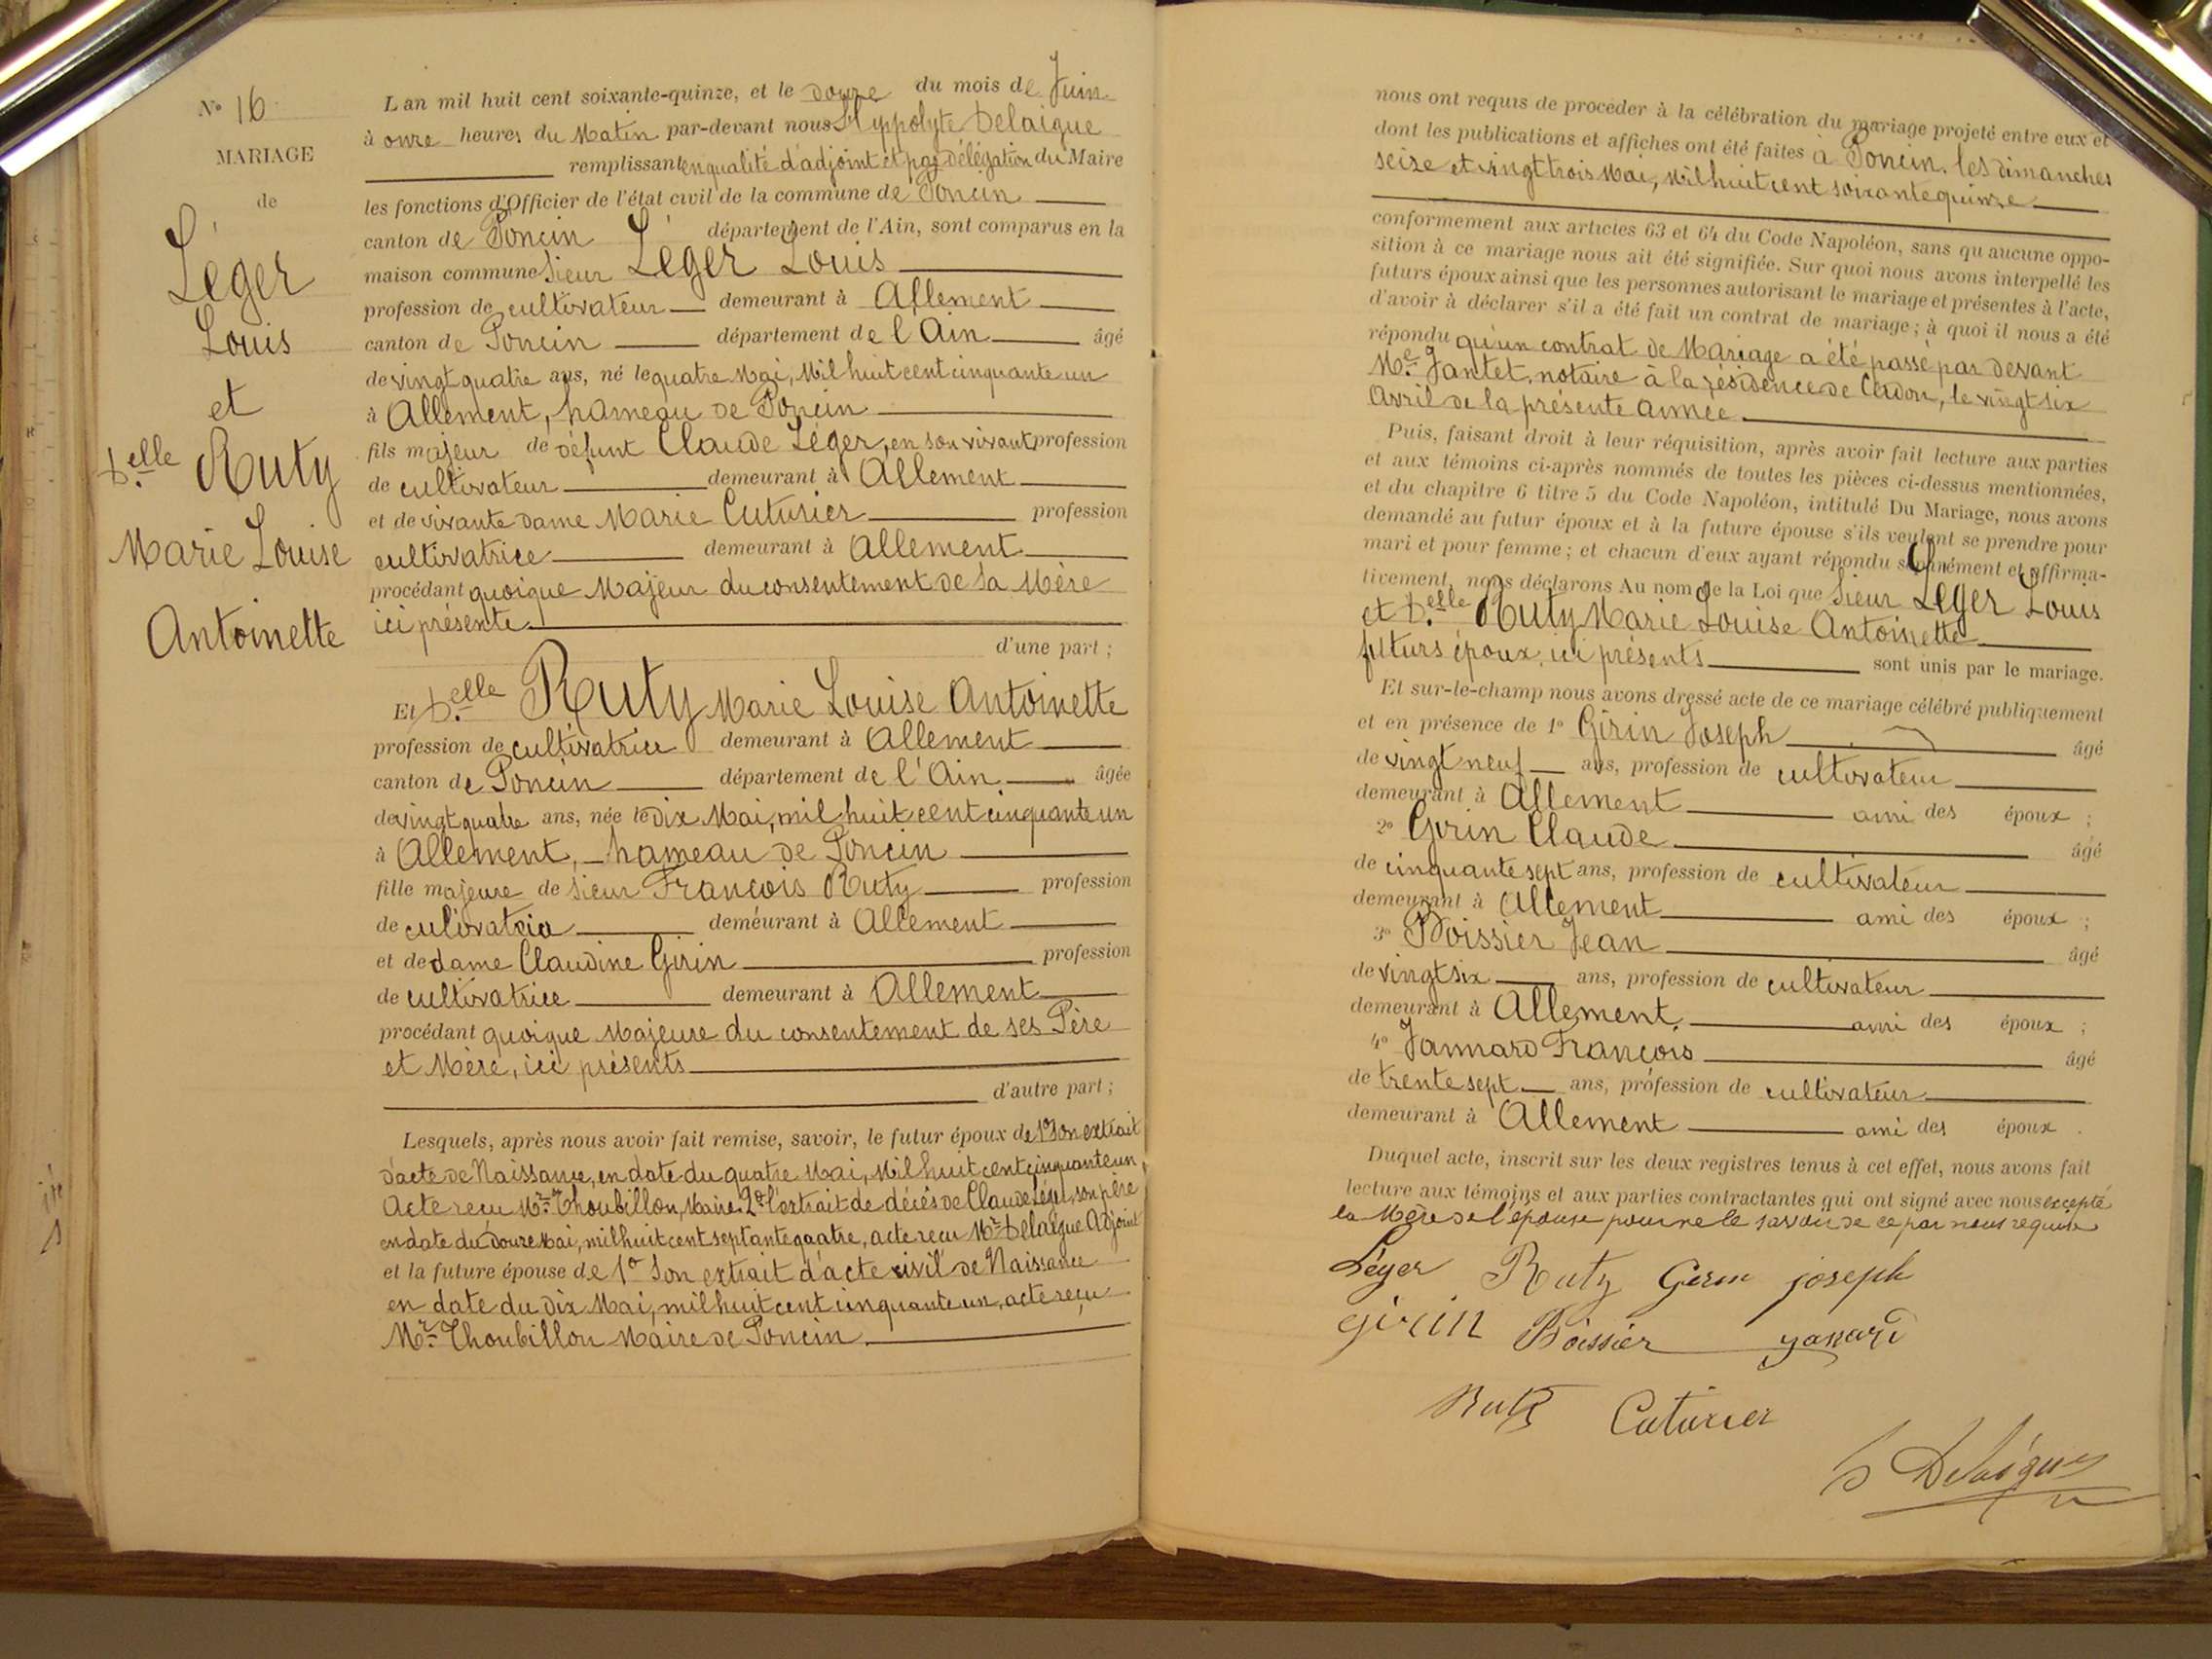 N° 16
MARIAGE
de
Léger
Louis
et
D.elle Ruty
Marie Louise
Antoinette
L an mil huit cent soixante-quinze, et le douze du mois de Juin
à onze heures du Matin par-devant nous Hyppolyte Delaigue
remplissant en qualité d'adjoint et par délégation du Maire
les fonctions d'Officier de l'état civil de la commune de Poncin
canton de Poncin département de l'Ain, sont comparus en la
maison commune Sieur Léger Louis
profession de cultivateur demeurant à Allement
canton de Poncin département de l'Ain âgé
de vingt quatre ans, né le quatre Mai, Mil huit cent cinquante un
à Allement, hameau de Poncin
fils majeur de défunt Claude Léger, en son vivant profession
de cultivateur demeurant à Allement
et de vivante dame Marie Cuturier profession
cultivatrice demeurant à Allement
procédant quoique Majeur du consentement de sa Mère
ici présente
d'une part ;
Et D.elle Ruty Marie Louise Antoinette
profession de cultivatrice demeurant à Allement
canton de Poncin département de l'Ain âgée
de vingt quatre ans, née le dix Mai, mil huit cent cinquante un
à Allement, hameau de Poncin
fille majeure de Sieur François Ruty profession
de demeurant à Allement
et de dame Claudine Girin profession
de cultivatrice demeurant à Allement
procédant quoique Majeure du consentement de ses Père
et Mère, ici présents
d'autre part ;
Lesquels, après nous avoir fait remise, savoir, le futur époux de 1° Son extrait
d'acte de Naissance, en date du quatre Mai, Mil huit cent cinquante un,
Acte reçu Mr. Thoubillon, Maire. 2° l'extrait de décès de Claude Léger, son père
en date du douze Mai, mil huit cent septante quatre, acte reçu Mr. Delaigue Adjoint
et la future épouse de 1° Son extrait d'acte civil de Naissance
en date du dix Mai, mil huit cent cinquante un, acte reçu
Mr. Thoubillon Maire de Poncin
nous ont requis de procéder à la célébration du mariage projeté entre eux et
dont les publications et affiches ont été faites à Poncin. les dimanches
seize et vingt trois Mai, Mil huit cent soixante quinze
conformement aux articles 63 et 64 du Code Napoléon, sans qu aucune oppo-
sition à ce mariage nous ait été signifiée. Sur quoi nous avons interpellé les
futurs époux ainsi que les personnes autorisant le mariage et présentes à l'acte,
d'avoir à déclarer s'il a été fait un contrat de mariage ; à quoi il nous a été
répondu qu'un contrat de Mariage a été passé par devant
Me. Jantet, notaire à la résidence de Cerdon, le vingt six
Avril de la présente année
Puis, faisant droit à leur réquisition, après avoir fait lecture aux parties
et aux témoins ci-après nommés de toutes les pièces ci-dessus mentionnées,
et du chapitre 6 titre 5 du Code Napoléon, intitulé Du Mariage, nous avons
demandé au futur époux et à la future épouse s'ils veulent se prendre pour
mari et pour femme ; et chacun d'eux ayant répondu séparément et affirma-
tivement, nous déclarons Au nom de la Loi que Sieur Léger Louis
et D.elle Ruty Marie Louise Antoinette
futurs époux, ici présents sont unis par le mariage.
Et sur-le-champ nous avons dressé acte de ce mariage célébré publiquement
et en présence de 1° Girin Joseph âgé
de vingt neuf ans, profession de cultivateur
demeurant à Allement ami des époux ;
2° Girin Claude âgé
de cinquante sept ans, profession de cultivateur
demeurant à Allement ami des époux ;
3° Boissier Jean âgé
de vingt six ans, profession de cultivateur
demeurant à Allement ami des époux ;
4° Jannard François âgé
de trente sept ans, profession de cultivateur
demeurant à Allement ami des époux .
Duquel acte, inscrit sur les deux registres tenus à cet effet, nous avons fait
lecture aux témoins et aux parties contractantes qui ont signé avec nous excepté
la Mère de l'épouse pour ne le savoir de ce par nous requise
Léger Ruty Girin joseph
girin Boissier janard
Ruty Cuturier
h Delaigue